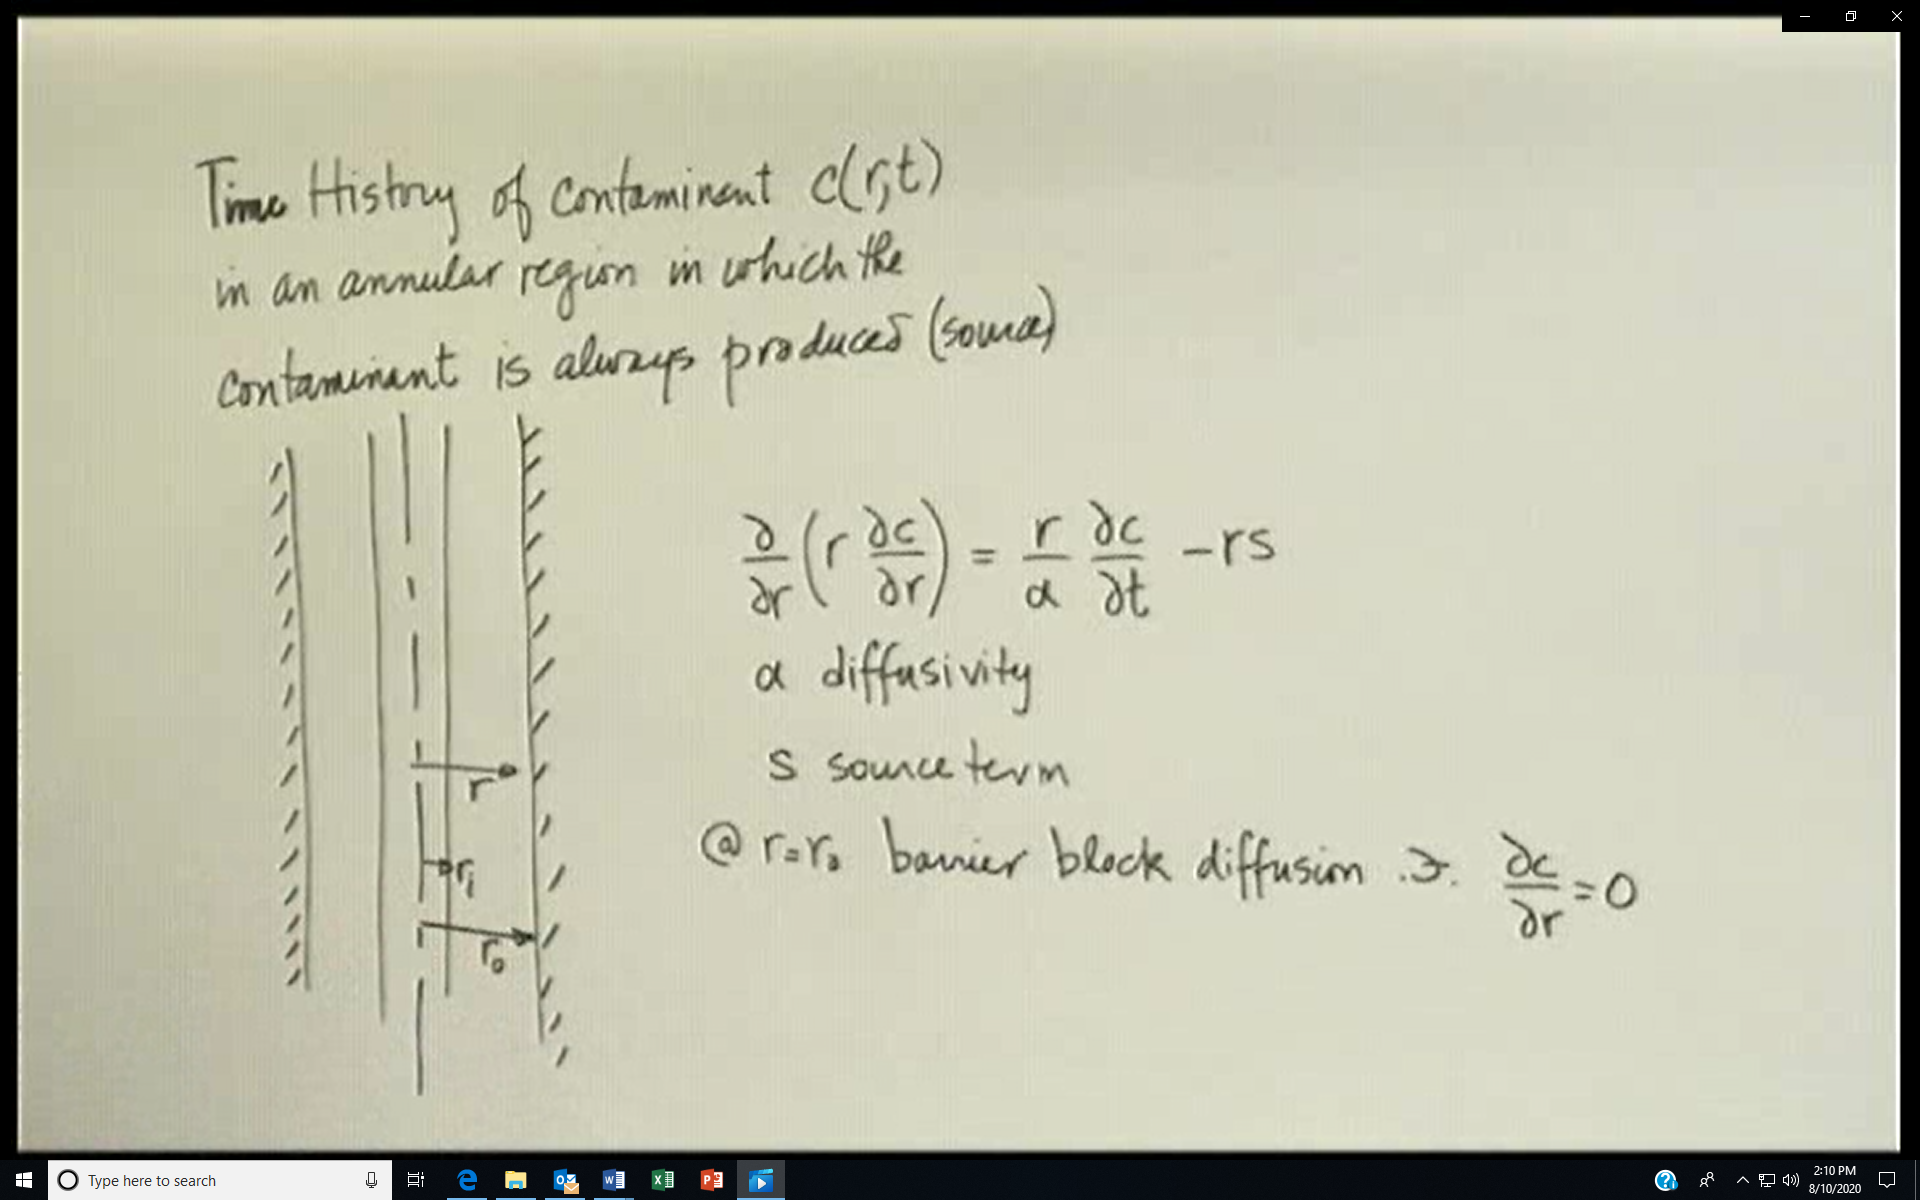 Time History of Contaminent c(r,t)
in an annular region in which the
contaminant is always produced (source)
∂/∂r (r ∂c/∂r) = r/α ∂c/∂t - rs
α diffusivity
s source term
@ r=r₀ barrier block diffusion .⊃. ∂c/∂r = 0
r
rᵢ
r₀
Type here to search
2:10 PM
8/10/2020